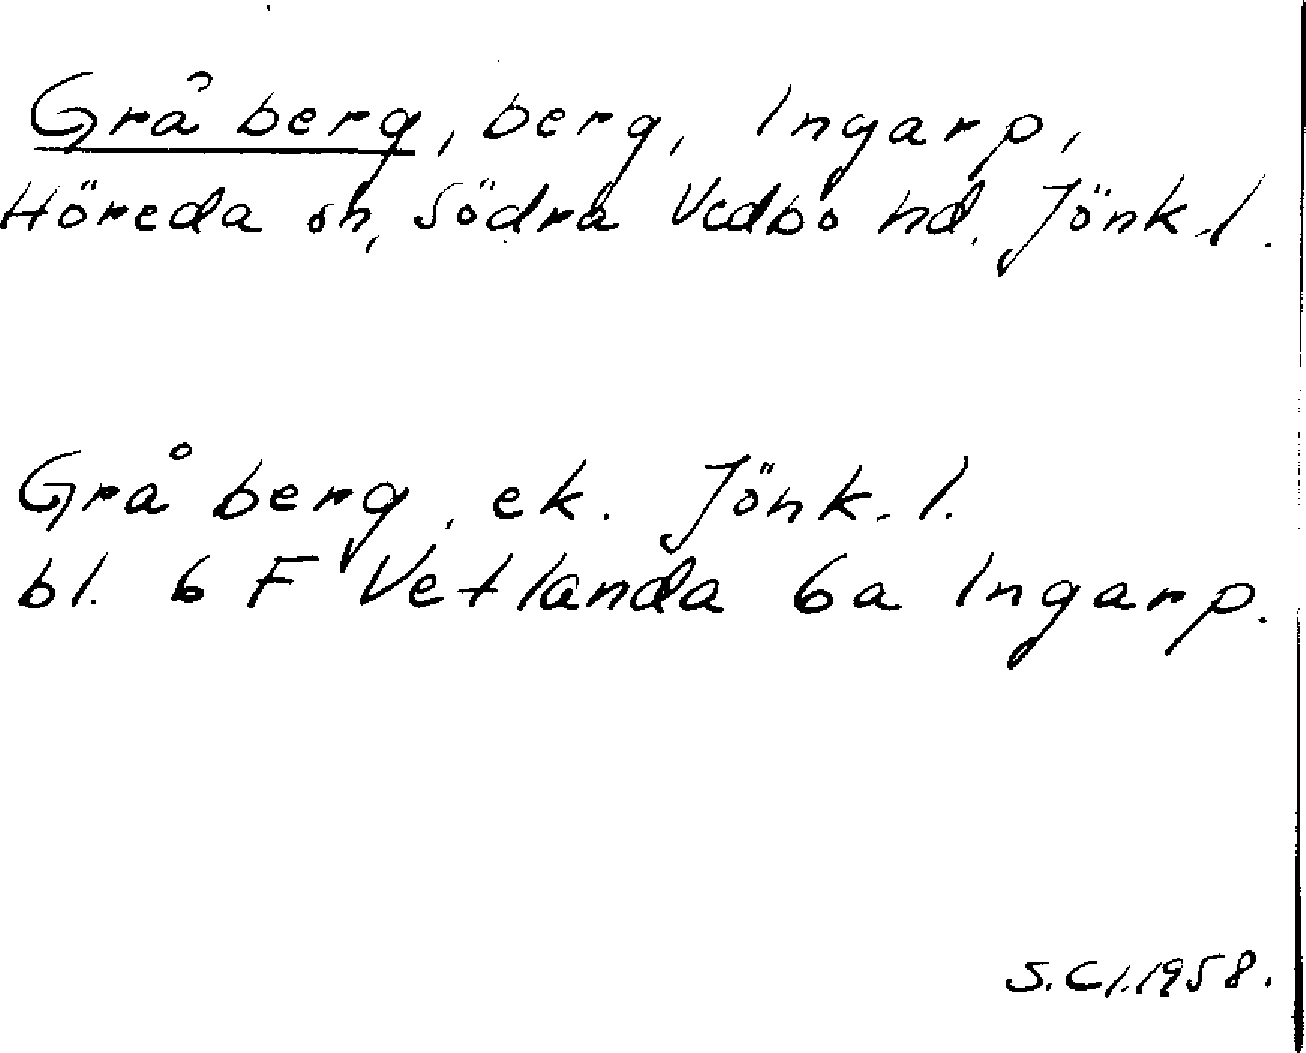 Grå berg, berg, Ingarp,
Höreda sn, Södra Vedbo hd. Jönk.l.
Grå berg, ek. Jönk.l.
bl. 6 F Vetlanda 6a Ingarp.
S.Cl.1958.